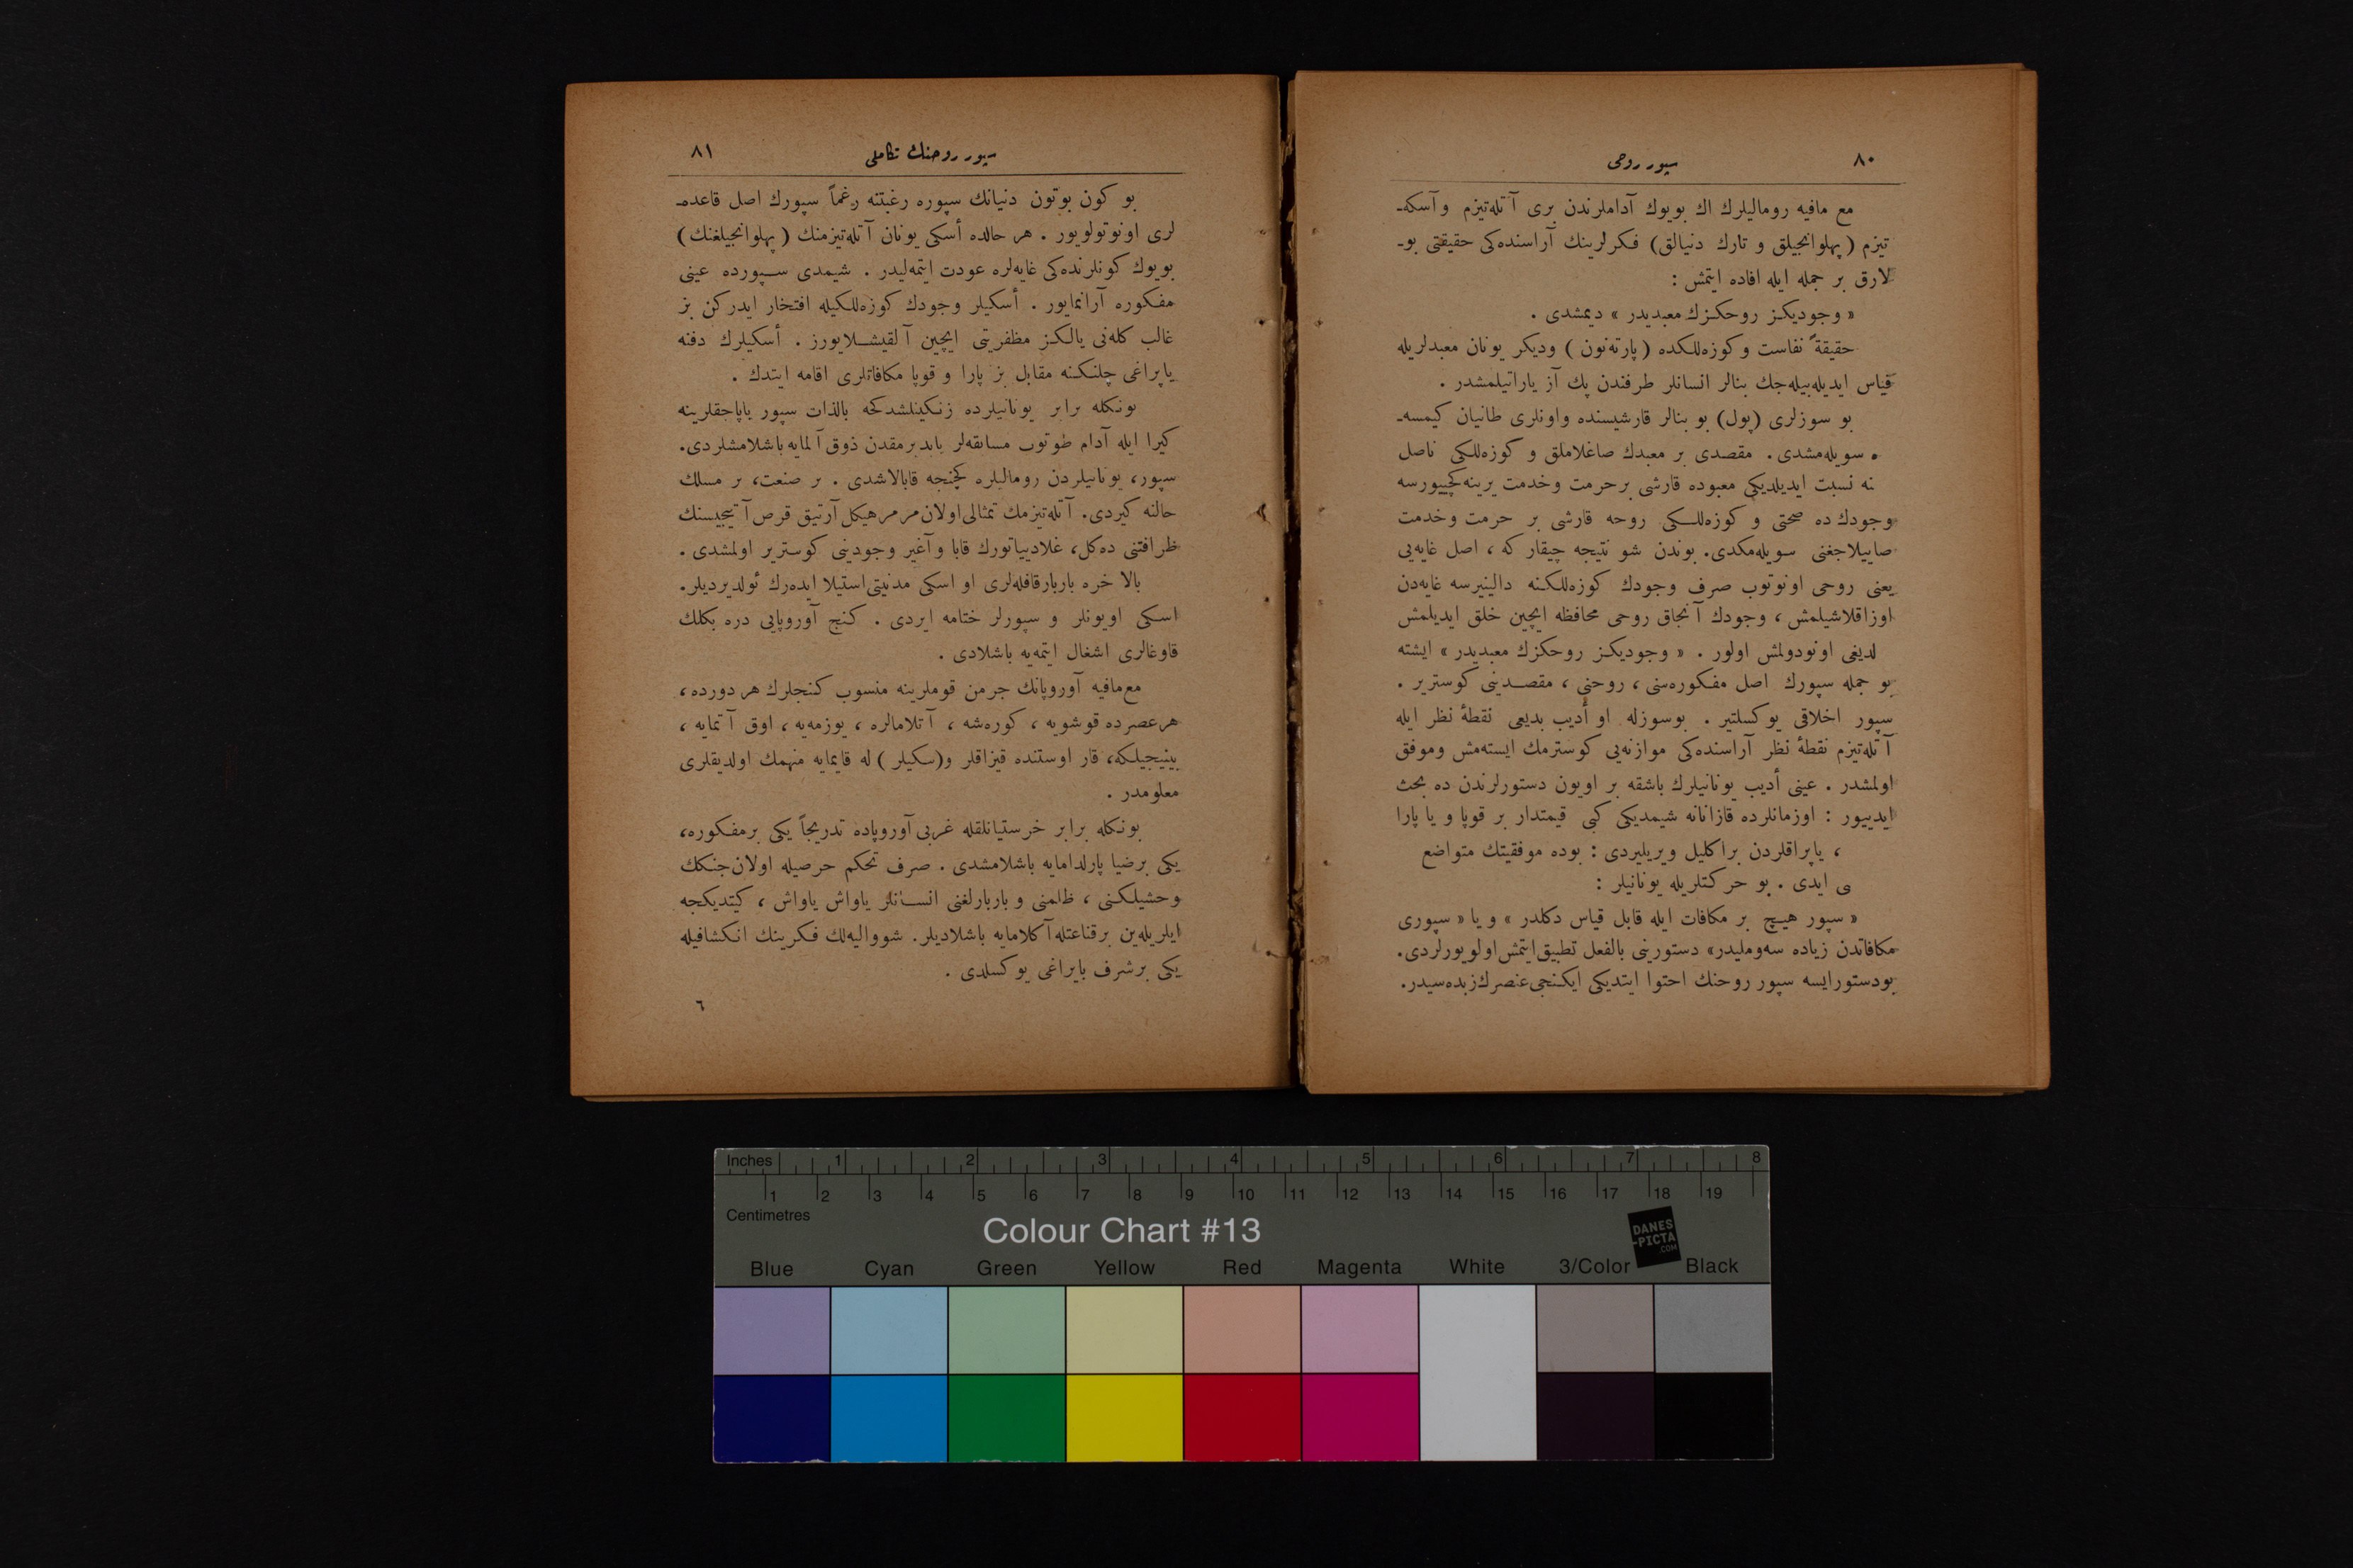 ٨٠
سپور روحی
مع مافیه رومالیلرك اك بویوك آداملرندن بری آتله‌تیزم وآسكه‌ـ
تیزم (پهلوانجیلق و تارك دنیالق) فكرلرینك آراسنده‌كی حقیقتی بو‌ـ
لارق بر جمله ایله افاده ایتمش :
« وجودیكز روحكزك معبدیدر » دیمشدی .
حقیقةً نفاست وكوزه‌للكده (پارته‌نون) ودیكر یونان معبدلریله
قیاس ایدیله‌بیله‌جك بنالر انسانلر طرفندن پك آز یاراتیلمشدر .
بو سوزلری (پول) بو بنالر قارشیسنده واونلری طانیان كیمسه‌ـ
ه سویله‌مشدی . مقصدی بر معبدك صاغلاملق و كوزه‌للكی ناصل
نه نسبت ایدیلدیكی معبوده قارشی برحرمت وخدمت یرینه كچییورسه
وجودك ده صحتی و كوزه‌للـكی روحه قارشی بر حرمت وخدمت
صاییلاجغنی سویله‌مكدی . بوندن شو نتیجه چیقار كه ، اصل غایه‌یی
یعنی روحی اونوتوب صرف وجودك كوزه‌للكنه دالینیرسه غایه‌دن
اوزاقلاشیلمش ، وجودك آنجاق روحی محافظه ایچین خلق ایدیلمش
لدیغی اونودولمش اولور . « وجودیكز روحكزك معبدیدر » ایشته
بو جمله سپورك اصل مفكوره‌سنی ، روحنی ، مقصـدینی كوستریر .
سپور اخلاقی یوكسلتیر . بوسوزله او أدیب بدیعی نقطۀ نظر ایله
آتله‌تیزم نقطۀ نظر آراسنده‌كی موازنه‌یی كوسترمك ایسته‌مش وموفق
اولمشدر . عینی أدیب یونانیلرك باشقه بر اویون دستورلرندن ده بحث
ایدییور : اوزمانلرده قازانانه شیمدیكی كبی قیمتدار بر قوپا و یا پارا
، یاپراقلردن براكلیل ویریلیردی : بوده موفقیتك متواضع
ی ایدی . بو حركتلریله یونانیلر :
« سپور هیـچ بر مكافات ایله قابل قیاس دكلدر » و یا « سپوری
مكافاتدن زیاده سه‌وملیدر» دستورینی بالفعل تطبیق ایتمش اولویورلردی.
بودستورایسه سپور روحنك احتوا ایتدیكی ایكنجی عنصرك زبده سیدر.
٨١
سپور روحنك تكاملی
بو كون بوتون دنیانك سپوره رغبتنه رغماً سپورك اصل قاعده‌ـ
لری اونوتولویور . هر حالده أسكی یونان آتله‌تیزمنك (پهلوانجیلغنك)
بویوك كونلرنده‌كی غایه‌لره عودت ایتمه‌لیدر . شیمدی سـپورده عینی
مفكوره آرانمایور . أسكیلر وجودك كوزه‌للكیله افتخار ایدركن بز
غالب كله‌نی یالكز مظفریتی ایچین آلقیشـلایورز . أسكیلرك دفنه
یاپراغی چلنكنه مقابل بز پارا و قوپا مكافاتلری اقامه ایتدك .
بونكله برابر یونانیلرده زنكینلشدكجه بالذات سپور یاپاجقلرینه
كیرا ایله آدام طوتوب مسابقه‌لر یاپدیرمقدن ذوق آلمایه باشلامشلردی.
سپور، یونانیلردن رومالیلره كچنجه قابالاشدی . بر صنعت، بر مسلك
حالنه كیردی. آتله‌تیزمك تمثالی اولان مرمر هیكل آرتیق قرص آتیجیسنك
ظرافتنی ده‌كل، غلادییاتورك قابا وآغیر وجودینی كوستریر اولمشدی .
بالاخره باربارقافله‌لری او اسكی مدنیتی استیلا ایده‌رك ئولدیردیلر.
اسكی اویونلر و سپورلر ختامه ایردی . كنج آوروپایی دره بكلك
قاوغالری اشغال ایتمه‌یه باشلادی .
مع‌مافیه آوروپانك جرمن قوملرینه منسوب كنجلرك هر دورده،
هرعصرده قوشویه ، كوره‌شه ، آتلامالره ، یوزمه‌یه ، اوق آتمایه ،
بینیجیلكه، قار اوستنده قیزاقلر و(سكیلر) له قایمایه منهمك اولدیقلری
معلومدر .
بونكله برابر خرستیانلقله غربی آوروپاده تدریجاً یكی برمفكوره،
یكی برضیا پارلدامایه باشلامشدی . صرف تحكم حرصیله اولان جنكك
وحشیلكنی ، ظلمنی و باربارلغنی انسـانلر یاواش یاواش ، كیتدیكجه
ایلریله‌ین برقناعتله آكلامایه باشلادیلر. شووالیه‌لك فكرینك انكشافیله
یكی برشرف بایراغی یوكسلدی .
٦
Inches 1 2 3 4 5 6 7 8
1 2 3 4 5 6 7 8 9 10 11 12 13 14 15 16 17 18 19
Centimetres
Colour Chart #13
DANES
-PICTA
.COM
Blue Cyan Green Yellow Red Magenta White 3/Color Black